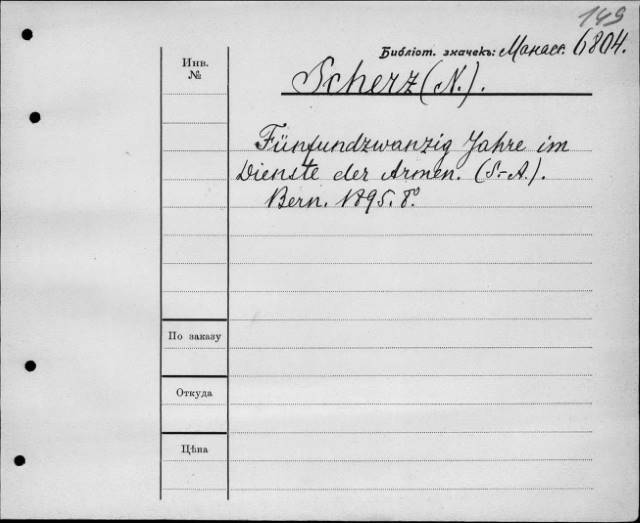 149
Библіот. значекъ: Манасс. 6804.
Инв.
№
Scherz (N.).
Fünfundzwanzig Jahre im
Dienste der Armen. (S.-A.).
Bern. 1895. 8º
По заказу
Откуда
Цѣна